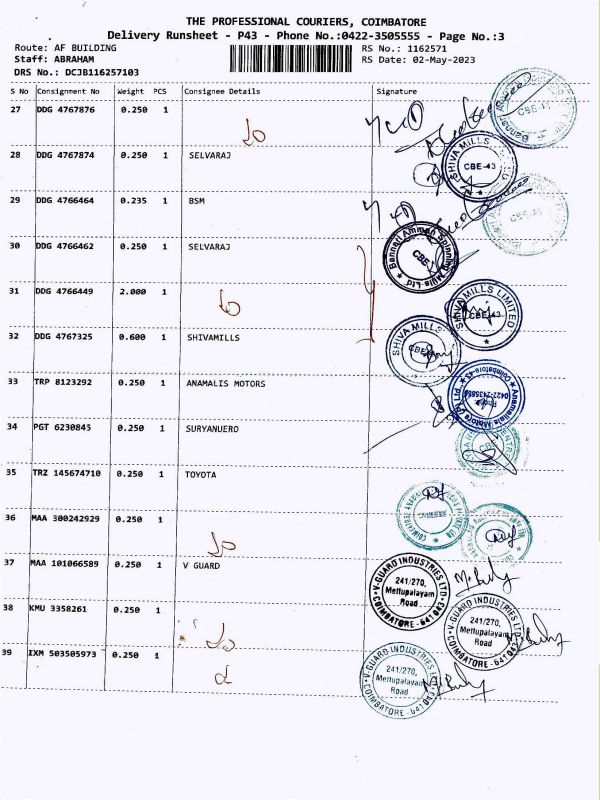 THE PROFESSIONAL COURIERS, COIMBATORE
Delivery Runsheet - P43 - Phone No.:0422-3505555 - Page No.:3
Route: AF BUILDING RS No.: 1162571
Staff: ABRAHAM RS Date: 02-May-2023
DRS No.: DCJB116257103
S No Consignment No Weight PCS Consignee Details Signature
27 DDG 4767876 0.250 1
28 DDG 4767874 0.250 1 SELVARAJ
29 DDG 4766464 0.235 1 BSM
30 DDG 4766462 0.250 1 SELVARAJ
31 DDG 4766449 2.000 1
32 DDG 4767325 0.600 1 SHIVAMILLS
33 TRP 8123292 0.250 1 ANAMALIS MOTORS
34 PGT 6230845 0.250 1 SURYANUERO
35 TRZ 145674710 0.250 1 TOYOTA
36 MAA 300242929 0.250 1
37 MAA 101066589 0.250 1 V GUARD
38 KMU 3358261 0.250 1
39 IXM 503505973 0.250 1
SHIVA MILLS
CBE-43
Bannari Amman Spinning Mills Ltd
CBE
SHIVA MILLS LIMITED
CBE-43
SHIVA MILLS
Anamallais Motors (P) Ltd.
Coimbatore
V-GUARD INDUSTRIES LTD
241/270,
Mettupalayam
Road
COIMBATORE - 641 043
V-GUARD INDUSTRIES LTD
241/270,
Mettupalayam
Road
COIMBATORE - 641 043
V-GUARD INDUSTRIES
241/270,
Mettupalayam
Road
COIMBATORE - 641 043